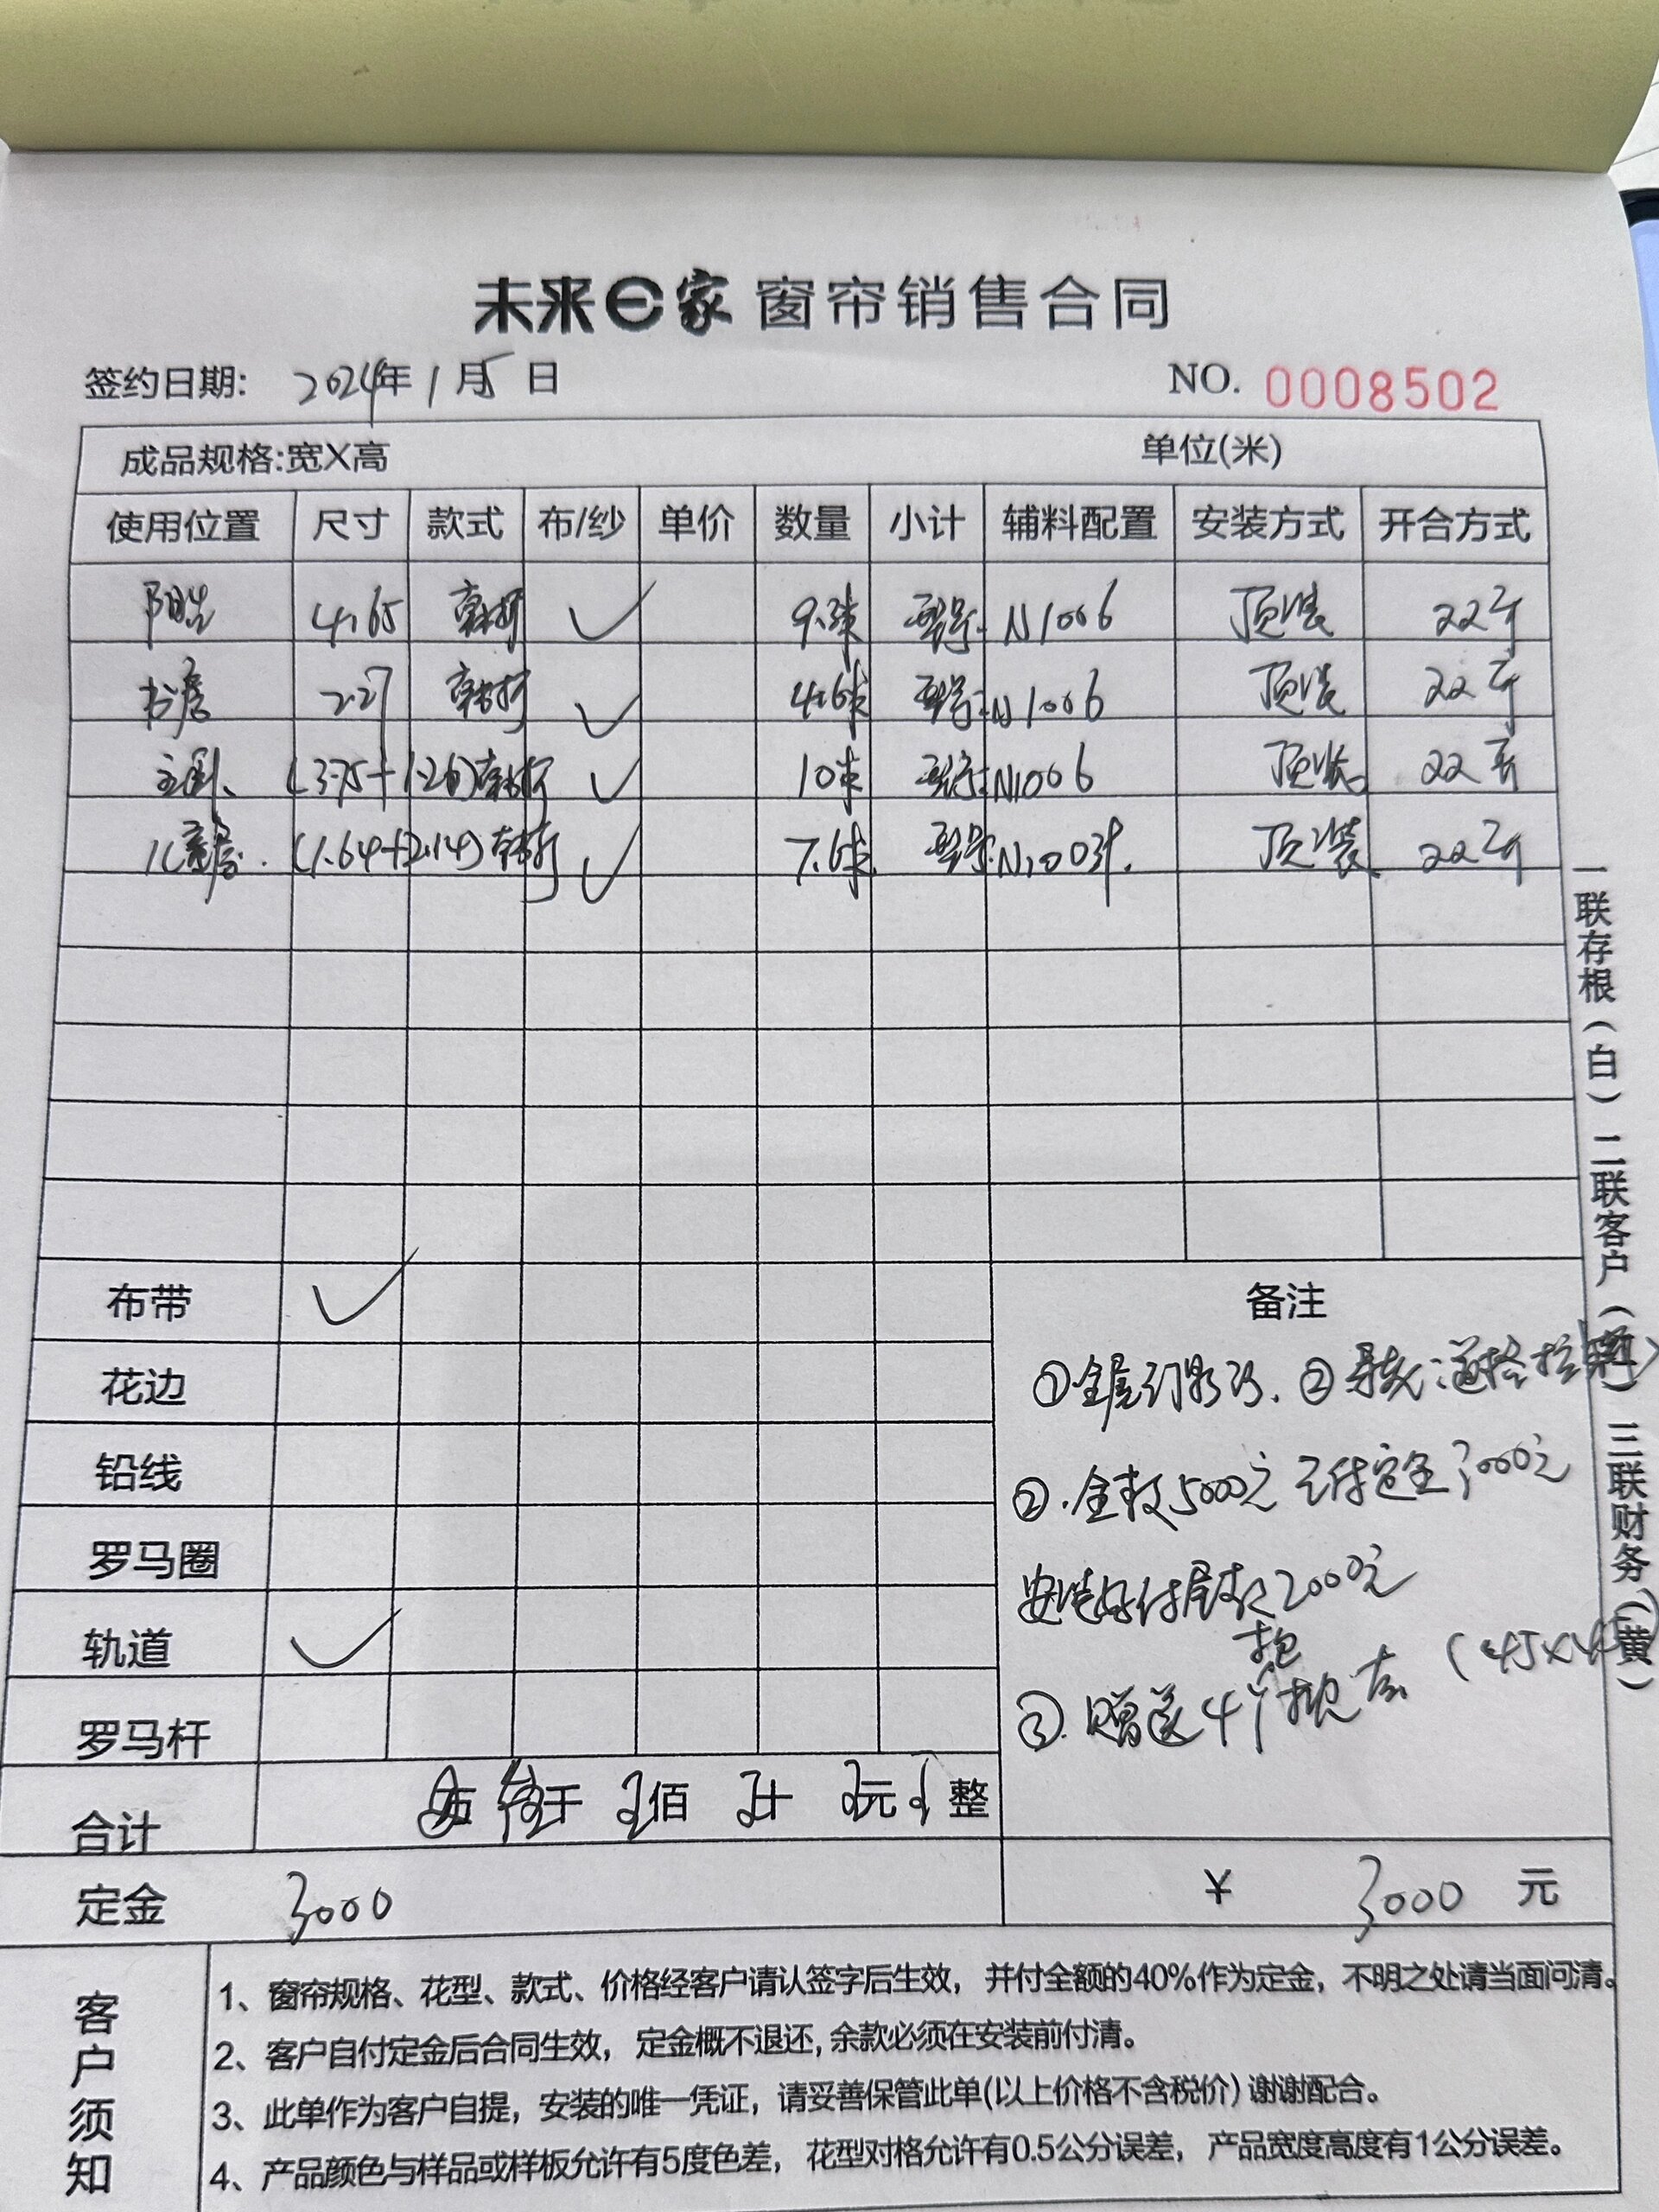 未来e家 窗帘销售合同
签约日期: 2024年1月5日 NO. 0008502
成品规格:宽X高 单位(米)
使用位置 尺寸 款式 布/纱 单价 数量 小计 辅料配置 安装方式 开合方式
阳台 4.65 韩折 ✓ 9.3米 型号: N1006 顶装 双开
书房 2.27 韩折 ✓ 4.6米 型号: N1006 顶装 双开
主卧 (3.75+1.26) 韩折 ✓ 10米 型号: N1006 顶装 双开
儿童房 (1.64+2.14) 韩折 ✓ 7.6米 型号: N1003 顶装 双开
布带 ✓ 备注
花边 ①全屋 ②
铅线 ②.全款5000元 已付定金3000元
罗马圈 安装好付尾款2000元
轨道 ✓ 抱
罗马杆 ③.赠送4个 (45x4
合计 万 仟 佰 十 元 整
定金 3000 ¥ 3000 元
客户须知
1、窗帘规格、花型、款式、价格经客户请认签字后生效，并付全额的40%作为定金，不明之处请当面问清。
2、客户自付定金后合同生效，定金概不退还,余款必须在安装前付清。
3、此单作为客户自提，安装的唯一凭证，请妥善保管此单(以上价格不含税价)谢谢配合。
4、产品颜色与样品或样板允许有5度色差，花型对格允许有0.5公分误差，产品宽度高度有1公分误差。
一联存根（白）二联客户（ ）三联财务（黄）